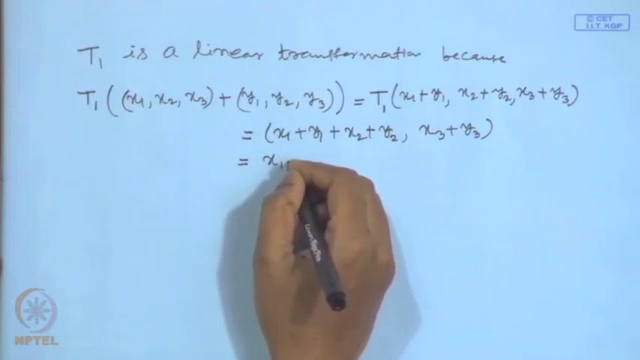 © CET
I.I.T. KGP
T₁ is a linear transformation because
T₁((x₁, x₂, x₃) + (y₁, y₂, y₃)) = T₁(x₁+y₁, x₂+y₂, x₃+y₃)
= (x₁+y₁+x₂+y₂, x₃+y₃)
= x₁
NPTEL